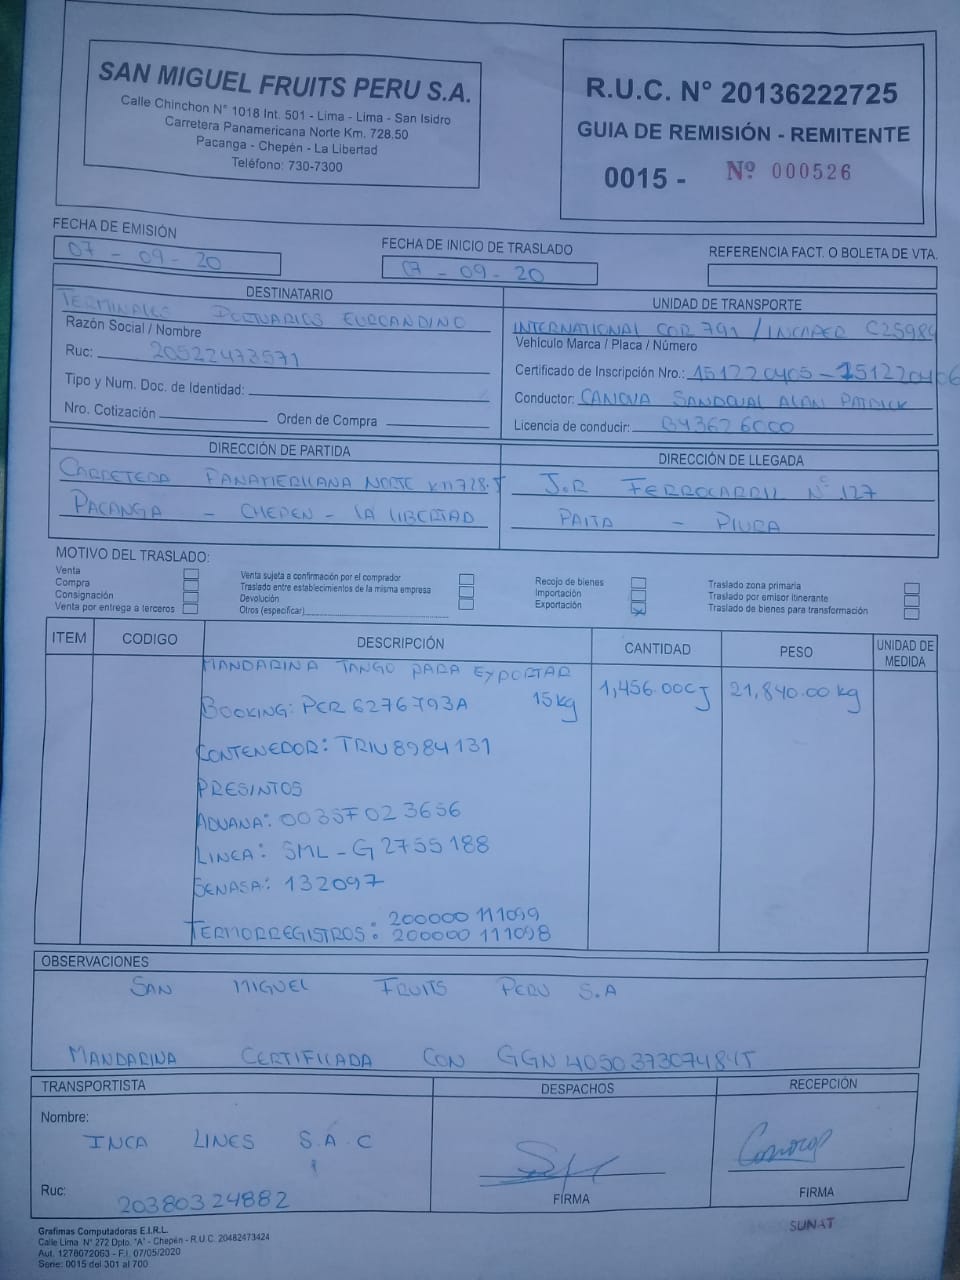 SAN MIGUEL FRUITS PERU S.A.
Calle Chinchon N° 1018 Int. 501 - Lima - Lima - San Isidro
Carretera Panamericana Norte Km. 728.50
Pacanga - Chepén - La Libertad
Teléfono: 730-7300
R.U.C. N° 20136222725
GUIA DE REMISIÓN - REMITENTE
0015 - Nº 000526
FECHA DE EMISIÓN
07 - 09 - 20
FECHA DE INICIO DE TRASLADO
07 - 09 - 20
REFERENCIA FACT. O BOLETA DE VTA.
DESTINATARIO
TERMINALES PORTUARIOS EUROANDINO
Razón Social / Nombre
Ruc: 20522473571
Tipo y Num. Doc. de Identidad:
Nro. Cotización Orden de Compra
UNIDAD DE TRANSPORTE
INTERNATIONAL COR 791 / INCAPER C2S984
Vehículo Marca / Placa / Número
Certificado de Inscripción Nro.: 151220405 - 151220406
Conductor: CANOVA SANDOVAL ALAN PATRICK
Licencia de conducir: B43626000
DIRECCIÓN DE PARTIDA
CARRETERA PANAMERICANA NORTE KM 728.5
PACANGA - CHEPEN - LA LIBERTAD
DIRECCIÓN DE LLEGADA
J.R FERROCARRIL N° 127
PAITA - PIURA
MOTIVO DEL TRASLADO:
Venta
Compra
Consignación
Venta por entrega a terceros
Venta sujeta a confirmación por el comprador
Traslado entre establecimientos de la misma empresa
Devolución
Otros (especificar)
Recojo de bienes
Importación
Exportación
Traslado zona primaria
Traslado por emisor itinerante
Traslado de bienes para transformación
ITEM CODIGO DESCRIPCIÓN CANTIDAD PESO UNIDAD DE MEDIDA
MANDARINA TANGO PARA EXPORTAR
BOOKING: PCR 6276793A 15 kg 1,456.00CJ 21,840.00 kg
CONTENEDOR: TRIU 8984131
PRESINTOS
ADUANA: 0035F023656
LINEA: SML - G2755188
SENASA: 132097
TERMORREGISTROS: 200000 111099
200000 111098
OBSERVACIONES
SAN MIGUEL FRUITS PERU S.A
MANDARINA CERTIFICADA CON GGN
TRANSPORTISTA
Nombre:
INCA LINES S.A.C
Ruc: 20380324882
DESPACHOS
FIRMA
RECEPCIÓN
FIRMA
SUNAT
Grafimas Computadoras E.I.R.L.
Calle Lima N° 272 Dpto. "A" - Chepén - R.U.C. 20482473424
Aut. 1278072063 - F.I. 07/05/2020
Serie: 0015 del 301 al 700